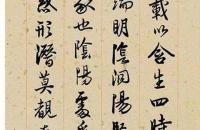 載以含生四時
端明陰洞陽賢
象也陰陽處乎
惑形潛莫覩在